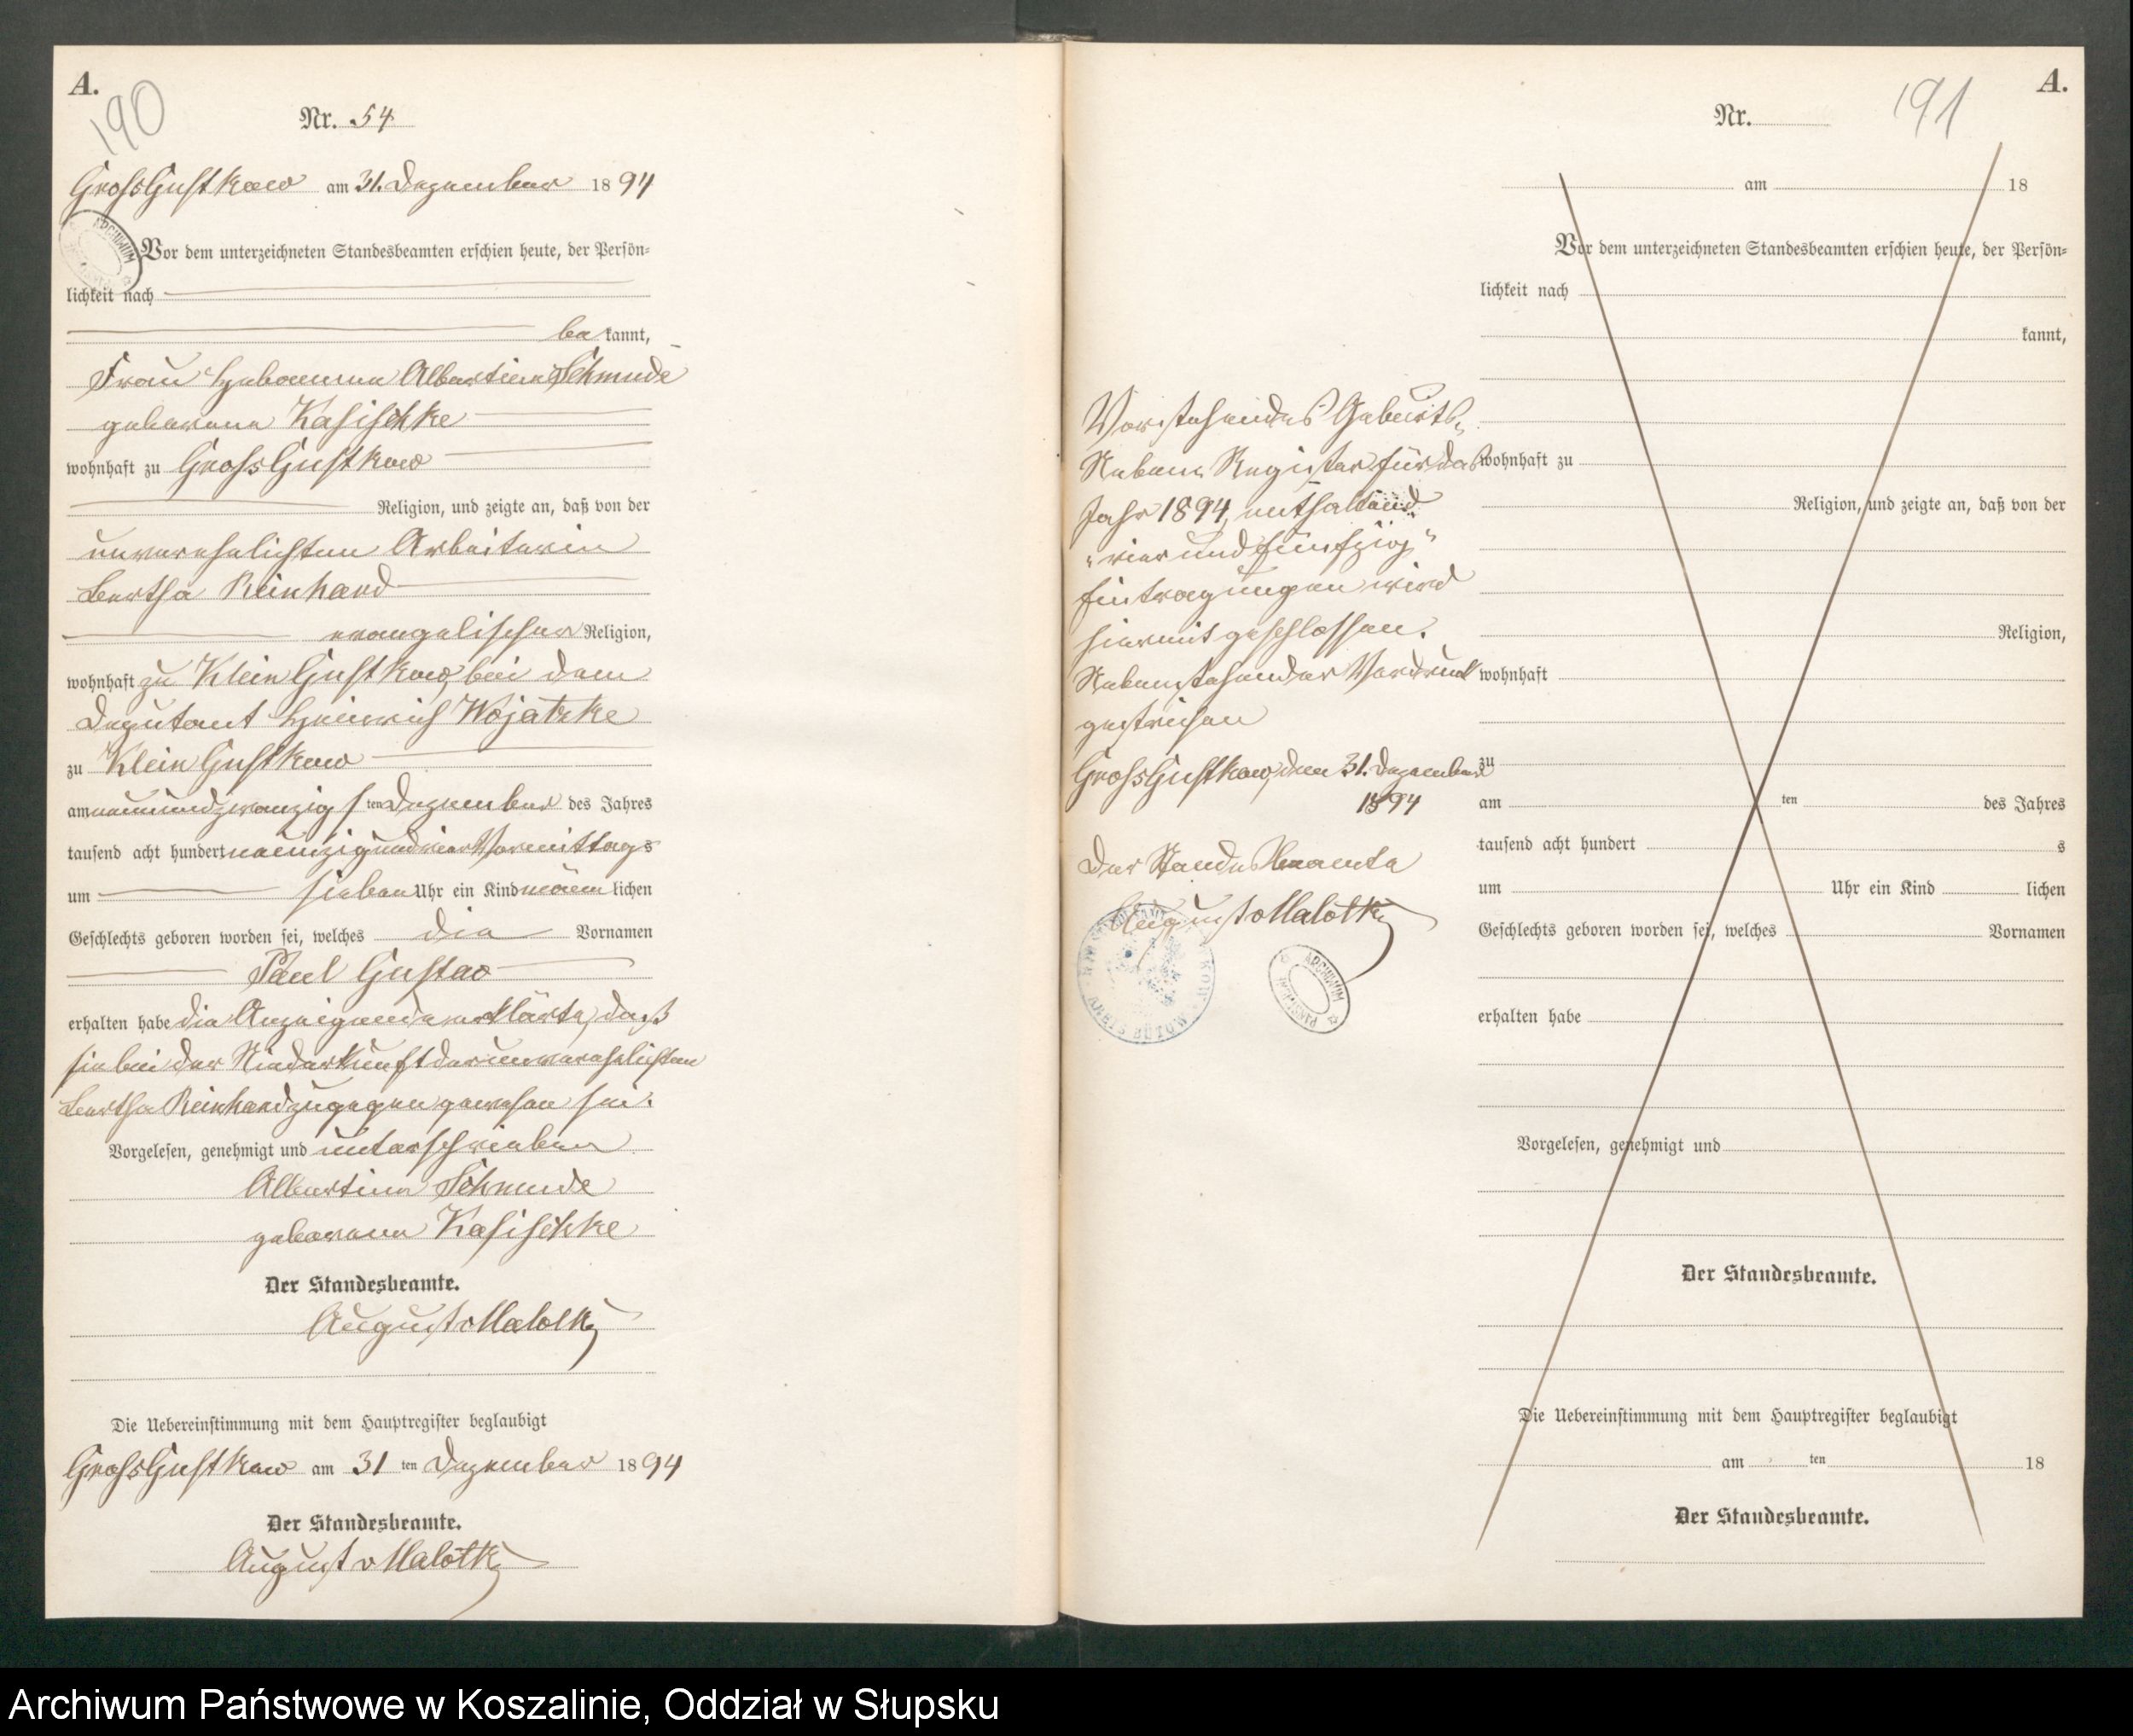 A.
190
Nr. 54
Gross Gustkow am 31. Dezember 1894
ARCHIWUM
Vor dem unterzeichneten Standesbeamten erschien heute, der Persön=
lichkeit nach
be kannt,
Frau Hebamme Albertine Schmude
geborene Kasischke
wohnhaft zu Gross Gustkow
Religion, und zeigte an, daß von der
unverehelichten Arbeiterin
Bertha Reinhard
evangelischer Religion,
wohnhaft zu Klein Gustkow, bei dem
Deputant Heinrich Wojatzke
zu Klein Gustkow
am neunundzwanzigsten Dezember des Jahres
tausend acht hundert neunzig und vier Vormittags
um sieben Uhr ein Kind männlichen
Geschlechts geboren worden sei, welches die Vornamen
Paul Gustav
erhalten habe die Anzeigende erklärte, daß
sie bei der Niederkunft der unverehelichten
Bertha Reinhard zugegen gewesen sei.
Vorgelesen, genehmigt und unterschrieben
Albertine Schmude
geborene Kasischke
Der Standesbeamte.
August v Malottki
Die Uebereinstimmung mit dem Hauptregister beglaubigt
Gross Gustkow am 31 ten Dezember 1894
Der Standesbeamte.
August v Malottki
Vorstehendes Geburts=
Neben Register für das
Jahr 1894, enthaltend
"vier und fünfzig"
Eintragungen wird
hiermit geschlossen.
Nebenstehender Vordruck
gestrichen
Gross Gustkow, den 31. Dezember
1894
Der Standesbeamte
August v Malottki
ARCHIWUM
A.
191
Nr.
am 18
Vor dem unterzeichneten Standesbeamten erschien heute, der Persön=
lichkeit nach
kannt,
wohnhaft zu
Religion, und zeigte an, daß von der
Religion,
wohnhaft
zu
am ten des Jahres
tausend acht hundert s
um Uhr ein Kind lichen
Geschlechts geboren worden sei, welches Vornamen
erhalten habe
Vorgelesen, genehmigt und
Der Standesbeamte.
Die Uebereinstimmung mit dem Hauptregister beglaubigt
am ten 18
Der Standesbeamte.
Archiwum Państwowe w Koszalinie, Oddział w Słupsku